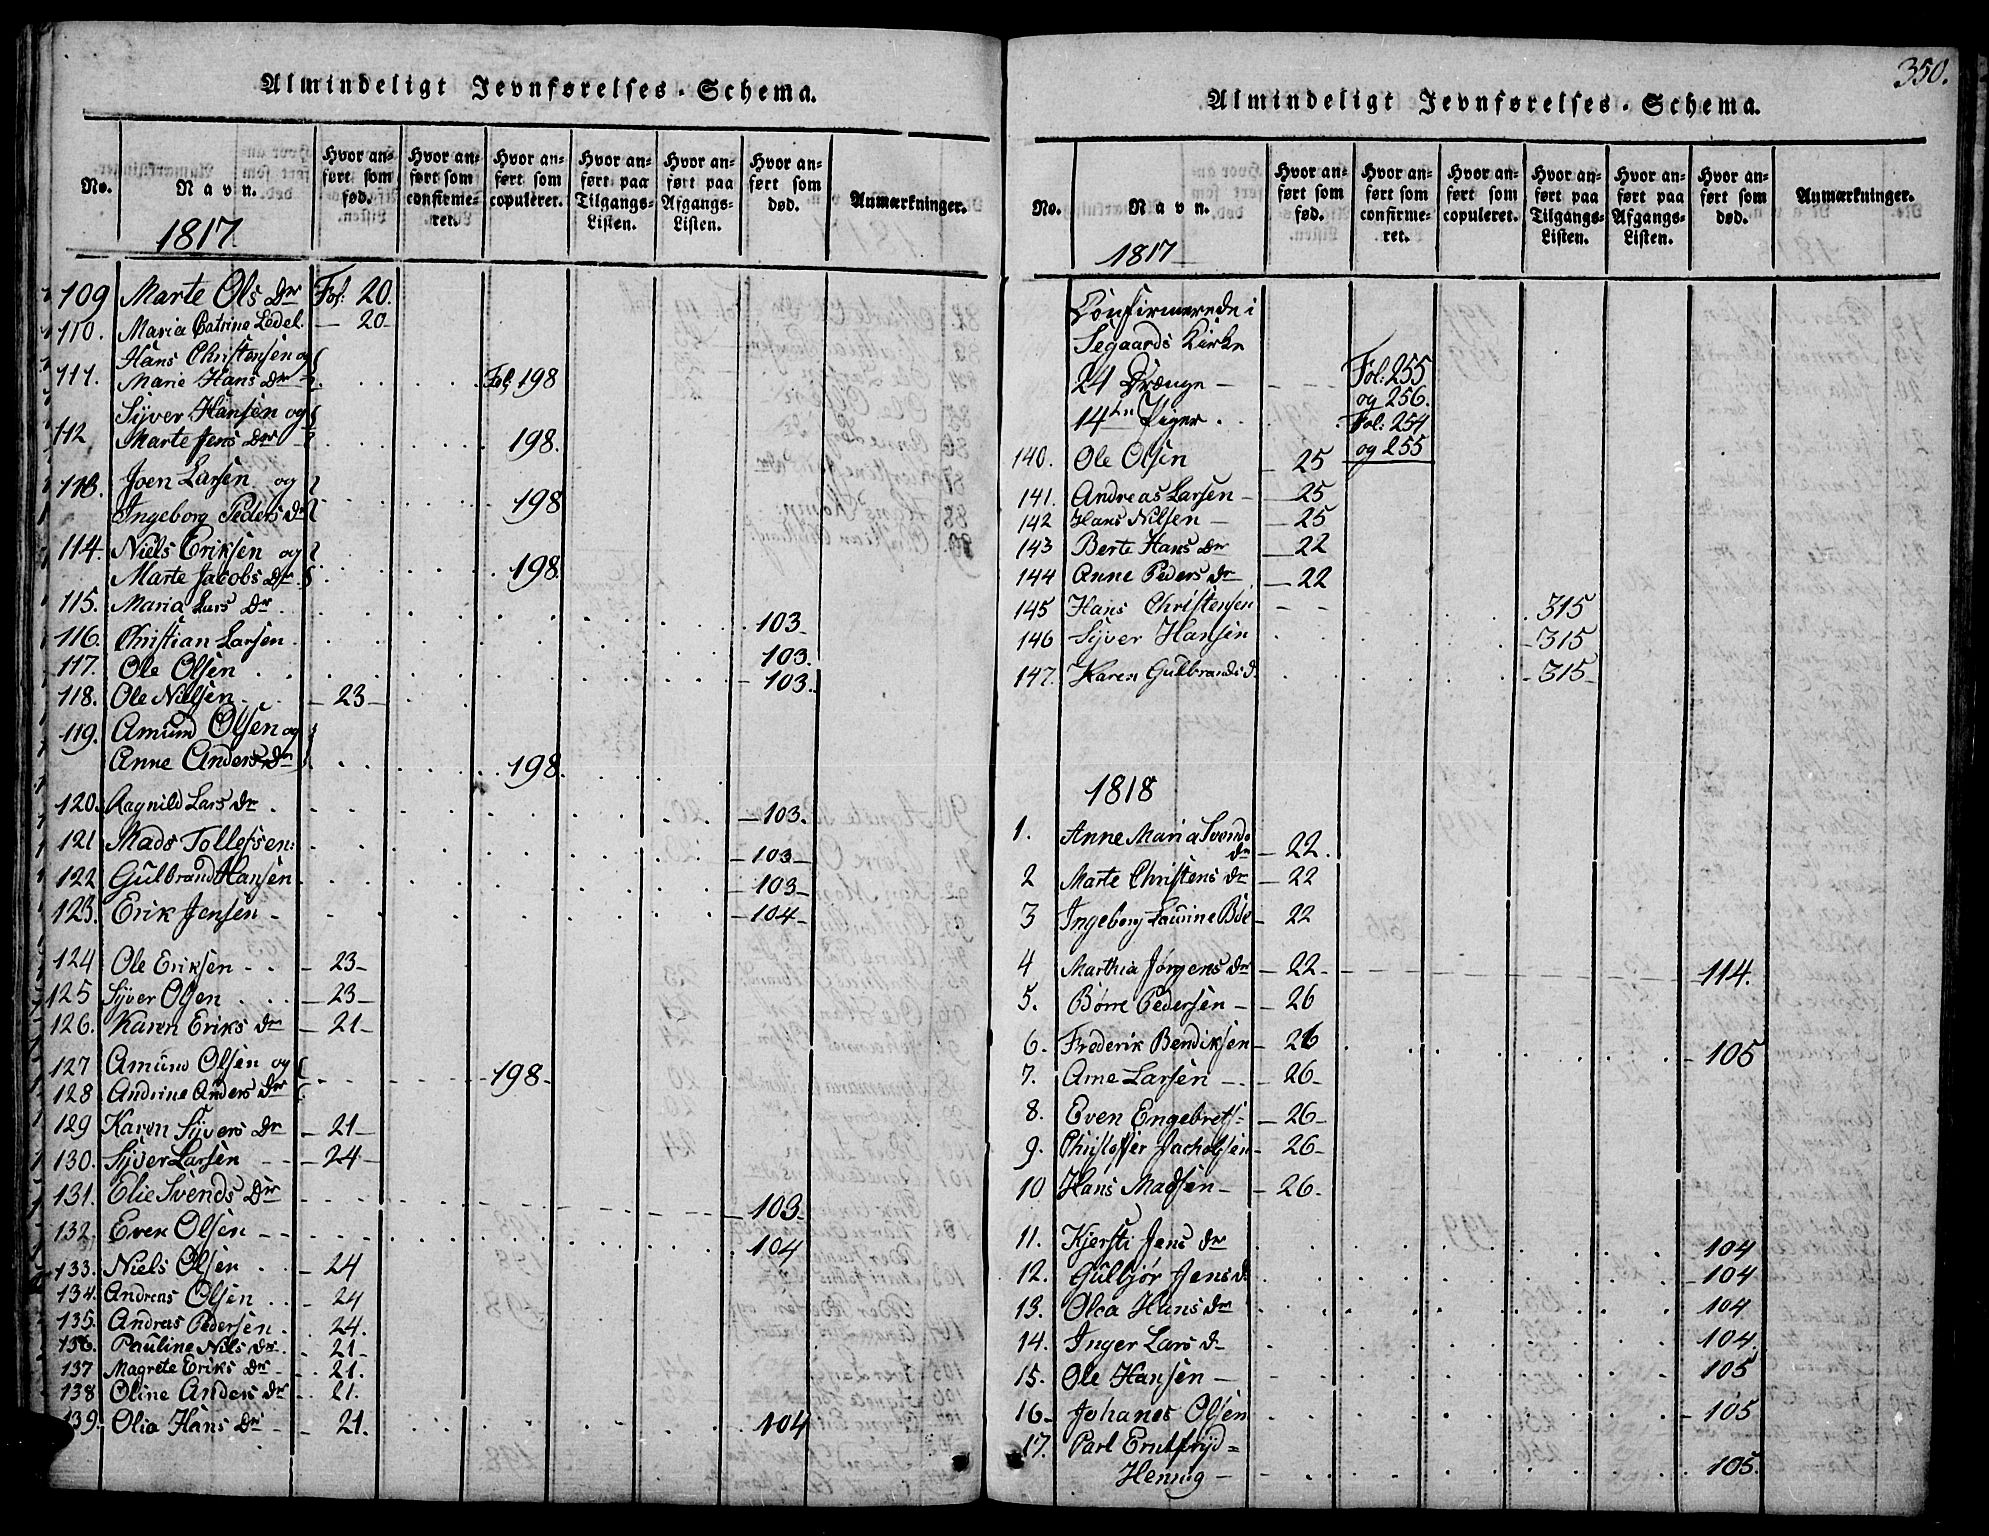 Almindeligt Jevnførelses-Schema.
No. Navn. Hvor anført som fød. Hvor anført som confirmeret. Hvor anført som copuleret. Hvor anført paa Tilgangs-Listen. Hvor anført paa Afgangs-Listen. Hvor anført som død. Anmærkninger.
1817
109 Marte Ols Dr Fol: 20.
110. Maria Catrine Ledel. — 20
Hans Christensen og
111. Marie Hans Dr Fol: 198
Syver Hansen og
112 Marte Jens Dr 198.
113. Joen Larsen og
Ingeborg Peders Dr 198
114. Niels Eriksen og
Marte Jacobs Dr. 198.
115. Maria Lars Dr. 103
116. Christian Larsen. 103.
117. Ole Olsen 103.
118. Ole Nielsen 23
119. Amund Olsen og
Anne Anders Dr 198.
120. Ragnild Lars Dr. 103.
121 Mads Tollefsen: 103
122 Gulbrand Hansen 103
123. Erik Jensen 104
124 Ole Eriksen 23
125 Syver Olsen 23
126. Karen Eriks Dr 21
127 Amund Olsen og
128 Andrine Anders Dr 198
129 Karen Syvers Dr 21
130. Syver Larsen 24
131. Elie Svends Dr 103
132. Even Olsen 104
133. Niels Olsen 24
134. Andreas Olsen 24
135. Andreas Pedersen 24.
136. Pauline Nils Dr. 21
137 Magrete Eriks Dr 21.
138 Oline Anders Dr 21.
139. Olia Hans Dr 21. 104
350.
Almindeligt Jevnførelses-Schema.
No. Navn. Hvor anført som fød. Hvor anført som confirmeret. Hvor anført som copuleret. Hvor anført paa Tilgangs-Listen. Hvor anført paa Afgangs-Listen. Hvor anført som død. Anmærkninger.
1817
Confirmerede i
Segaards Kirke
24 Drænge — Fol: 255
og 256.
14 Piger Fol: 254
og 255
140. Ole Olsen 25
141. Andreas Larsen 25
142 Hans Nilsen 25
143 Berte Hans Dr 22
144 Anne Peders Dr 22
145 Hans Christensen 315
146 Syver Hansen 315
147. Karen Gulbrands d. 315
1818
1. Anne Maria Svends
Dr 22.
2 Marte Christens Dr 22
3 Ingeborg Laurine 22
4 Marthia Jørgens Dr 22 114.
5. Børre Pedersen 26
6. Frederik Bendiksen 26 105
7. Arne Larsen 26
8. Even Engebrets: 26
9. Christoffer 26
10 Hans Madsen 26.
11. Kjersti Jens Dr 104
12. Gulbjør Jens d. 104
13. Olea Hans Dr 104
14. Inger Lars d 104
15. Ole Hansen 105
16. Johanes Olsen 105
17. Carl
Hennig 105.